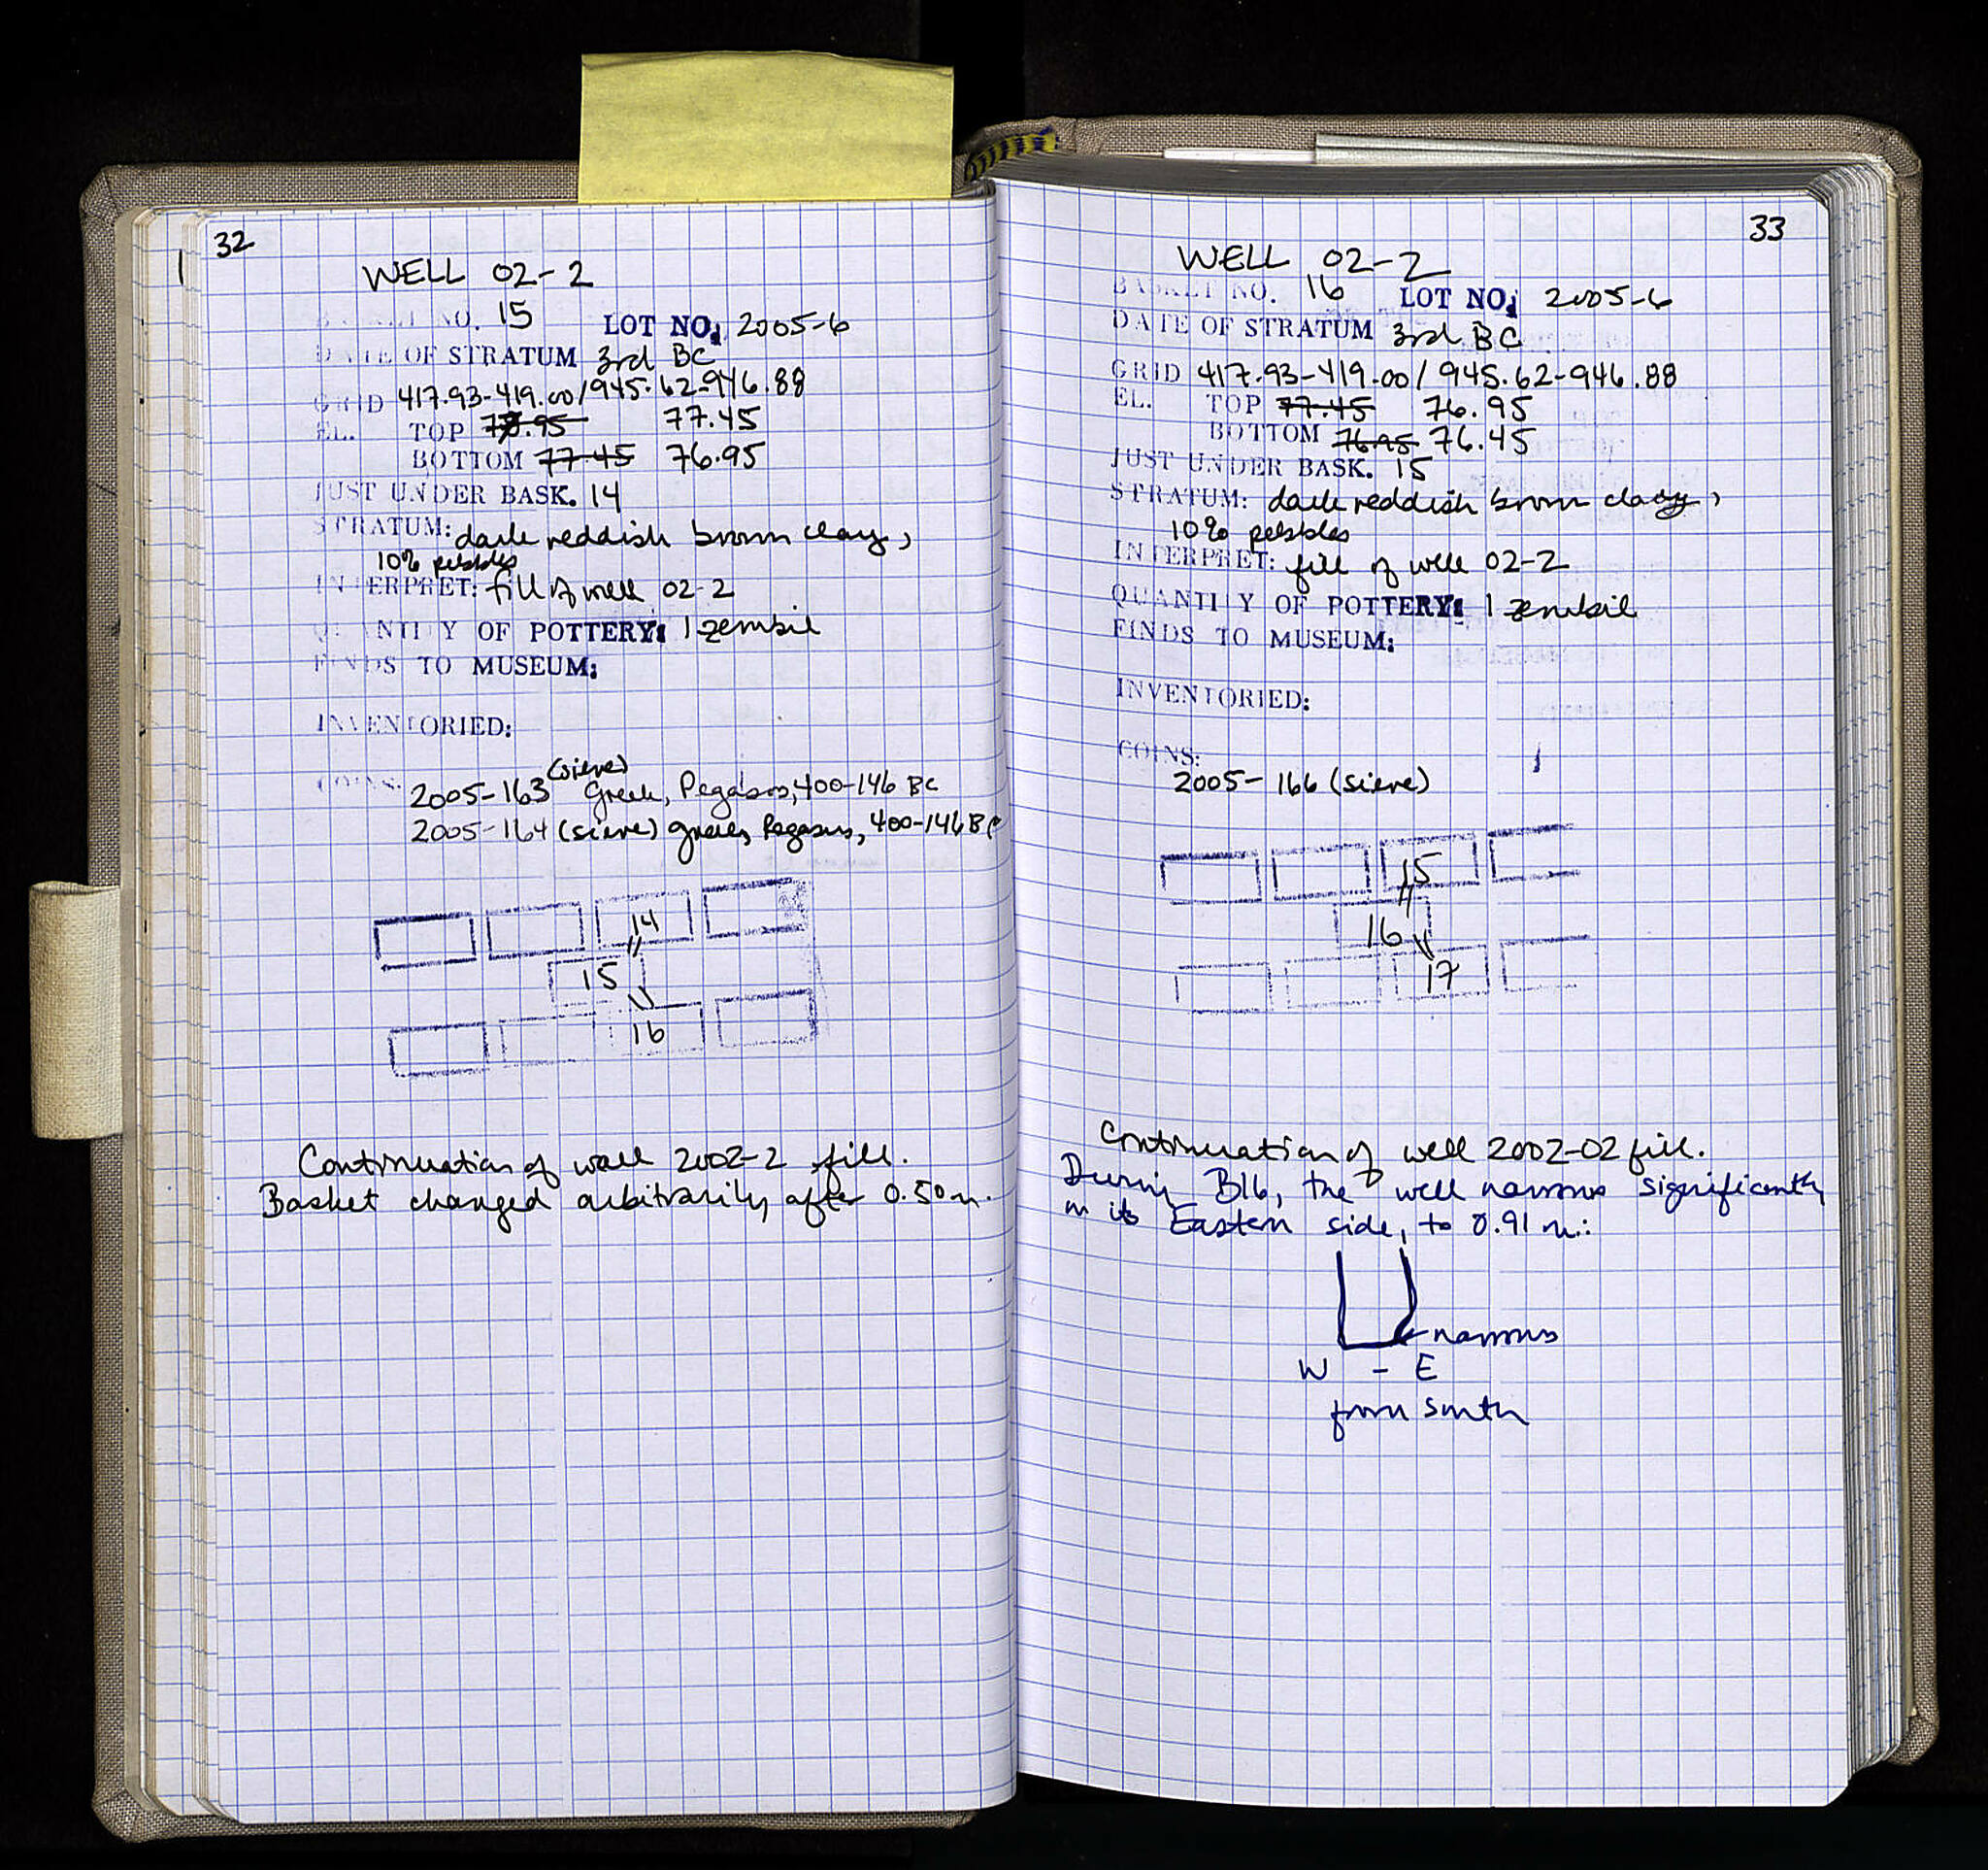 32
WELL 02-2
BASKET NO. 15 LOT NO: 2005-6
DATE OF STRATUM 3rd BC
GRID 417.93-419.00/945.62-946.88
EL. TOP 77.95 77.45
BOTTOM 77.45 76.95
JUST UNDER BASK. 14
STRATUM: dark reddish brown clay,
10% pebbles
INTERPRET: fill of well 02-2
QUANTITY OF POTTERY: 1 zembil
FINDS TO MUSEUM:
INVENTORIED:
COINS: 2005-163 (sieve) Greek, Pegasos, 400-146 BC
2005-164 (sieve) Greek, Pegasus, 400-146 BC
14
15
16
Continuation of well 2002-2 fill.
Basket changed arbitrarily after 0.50m.
33
WELL 02-2
BASKET NO. 16 LOT NO: 2005-6
DATE OF STRATUM 3rd BC
GRID 417.93-419.00/945.62-946.88
EL. TOP 77.45 76.95
BOTTOM 76.95 76.45
JUST UNDER BASK. 15
STRATUM: dark reddish brown clay,
10% pebbles
INTERPRET: fill of well 02-2
QUANTITY OF POTTERY: 1 zembil
FINDS TO MUSEUM:
INVENTORIED:
COINS:
2005-166 (sieve)
15
16
17
Continuation of well 2002-02 fill.
During B16, the well narrows significantly
in its Eastern side, to 0.91 m:
narrows
W - E
from South